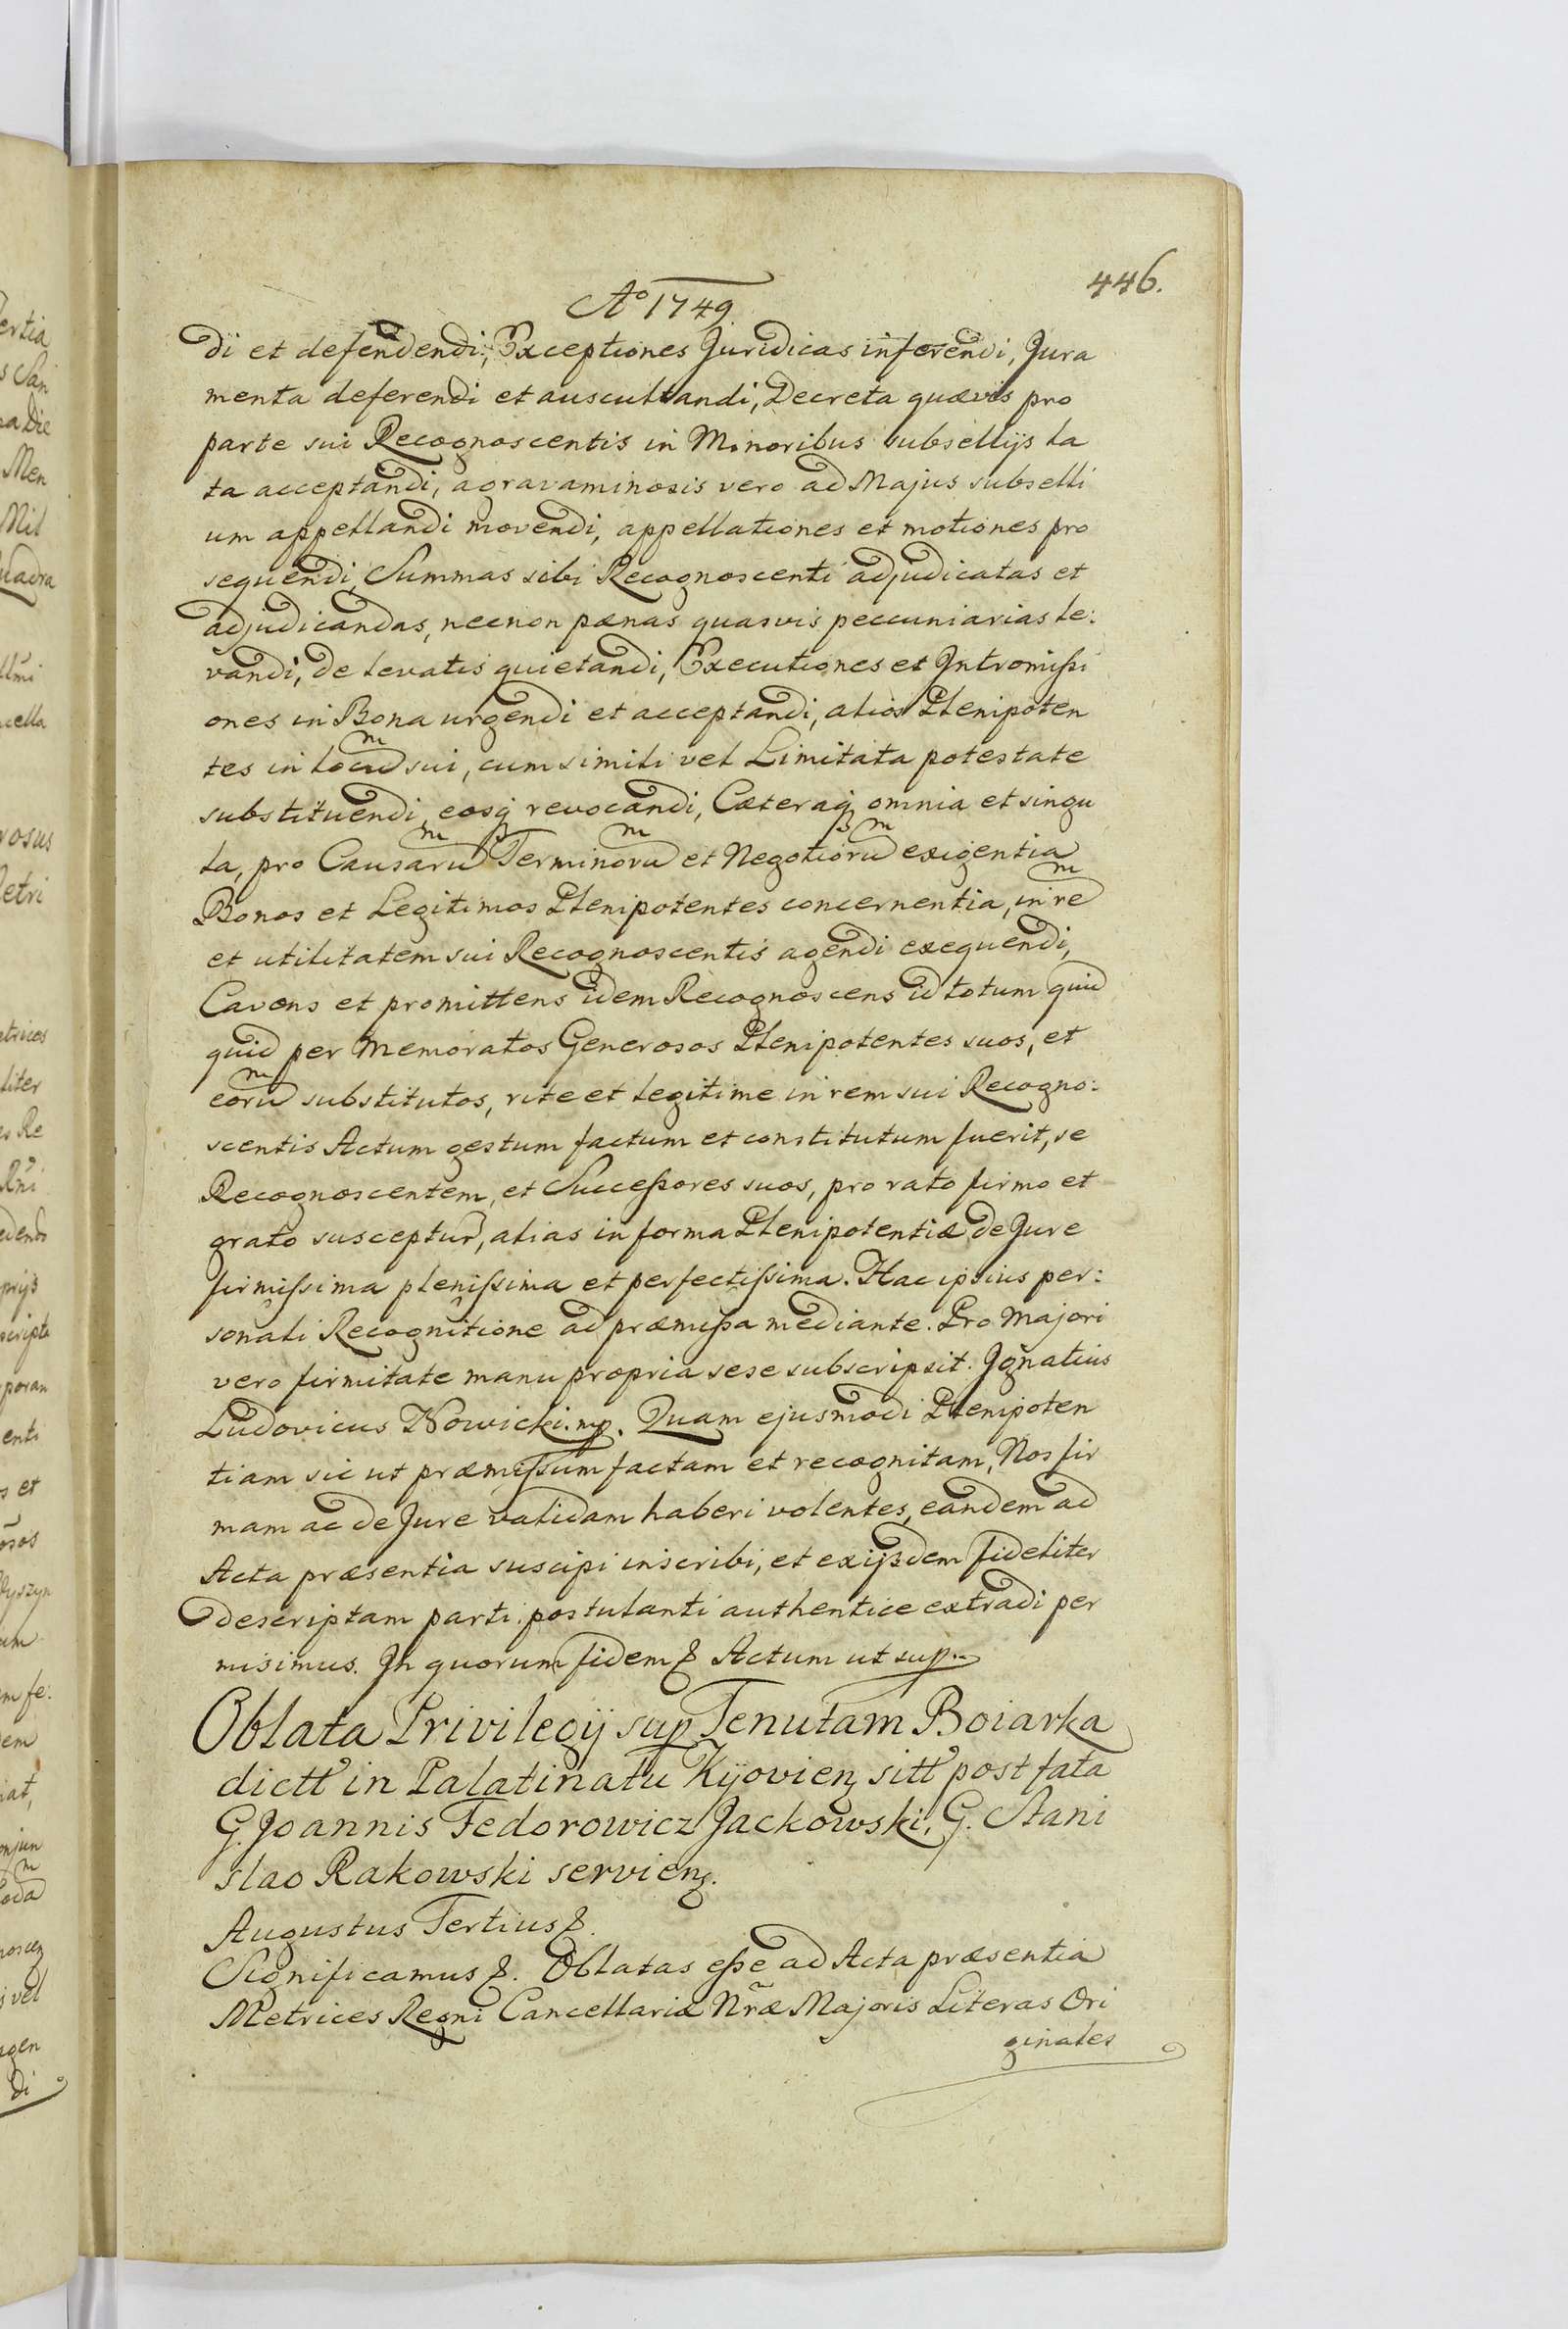 446.
Aº 1749.
di et defendendi, Exceptiones Juridicas inferendi, Jura
menta deferendi et auscultandi, Decreta quævis pro
parte sui Recognoscentis in Minoribus subsellijs la
ta acceptandi, agravaminosis vero ad Majus subselli
um appellandi movendi, appellationes et motiones pro
sequendi, Summas sibi Recognoscenti adjudicatas et
adjudicandas, necnon pænas quasvis peccuniarias le:
vandi, de levatis quietandi, Executiones et Intromißi
ones in Bona urgendi et acceptandi, alios Plenipoten
tes in locũ sui, cum simili vel Limitata potestate
substituendi, eosq̃ revocandi, Cæteraq̃ omnia et singu
la, pro Causarũ Terminorũ et Negotiorũ exigentia
Bonos et Legitimos Plenipotentes concernentia, in rẽ
et utilitatem sui Recognoscentis agendi exequendi,
Cavens et promittens idem Recognoscens id totum quid
quid per Memoratos Generosos Plenipotentes suos, et
eorũ substitutos, rite et legitime in rem sui Recogno:
scentis Actum gestum factum et constitutum fuerit, se
Recognoscentem, et Succeßores suos, pro rato firmo et
grato susceptur, alias in forma Plenipotentiæ de Jure
firmißima plenißima et perfectißima. Hac ipsius per:
sonali Recognitione ad præmißa mediante. Pro Majori
vero firmitate manu propria sese subscripsit. Ignatius
Ludovicus Nowicki. mp. Quam ejusmodi Plenipoten
tiam sic ut præmißum factam et recognitam, Nos fir
mam ac de Jure validam haberi volentes, eandem ad
Acta præsentia suscipi inscribi, et exijsdem fideliter
descriptam parti postulanti authentice extradi per
misimus. In quorum fidem & Actum ut sup.
Oblata Privilegij sup Tenutam Boiarka
dictt in Palatinatu Kijovien sitt post fata
G. Joannis Fedorowicz Jackowski, G. Stani
slao Rakowski servien.
Augustus Tertius &.
Significamus &. Oblatas eße ad Acta præsentia
Metrices Regni Cancellariæ Nr̃æ Majoris Literas Ori
ginales